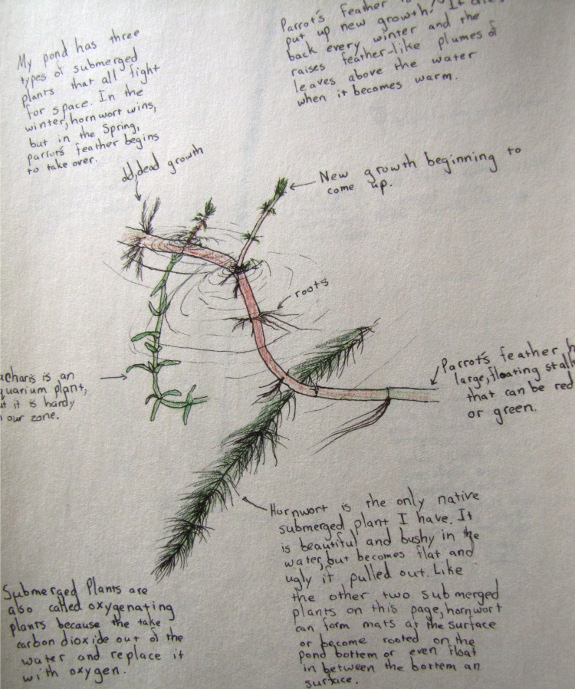 My pond has three
types of submerged
plants that all fight
for space. In the
winter, hornwort wins,
but in the Spring,
parrot's feather begins
to take over.
Parrot's feather is
put up new growth!
back every winter and the
raises feather-like plumes of
leaves above the water
when it becomes warm.
old, dead growth
New growth beginning to
come up.
roots
acharis is an
quarium plant,
ut it is hardy
our zone.
Parrot's feather h
large, floating stalk
that can be red
or green.
Hornwort is the only native
submerged plant I have. It
is beautiful and bushy in the
water, but becomes flat and
ugly if pulled out. Like
the other two submerged
plants on this page, hornwort
can form mats at the surface
or become rooted on the
pond bottem or even float
in between the bottem an
surface.
Submerged Plants are
also called oxygenating
plants because the take
carbon dioxide out of the
water and replace it
with oxygen.